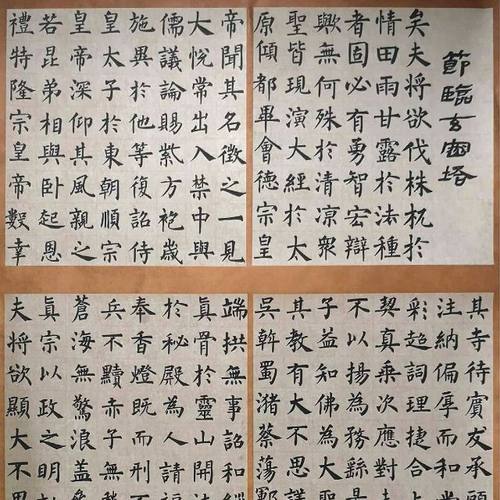 節臨玄密塔
矣夫將欲伐株杌於
情田雨甘露於法種
者固必有勇智宏辯
歟無何殊於清涼衆
聖皆現演大經於太
原傾都畢會德宗皇
帝聞其名徵之一見
大悅常出入禁中與
儒議論賜紫方袍歲
施異於他等復詔侍
皇太子於東朝順宗
皇帝深仰其風親之
若昆弟相與臥起恩
禮特隆宗皇帝數幸
其寺待賓友承顧
注納偏厚而
彩超詞理捷合上
契真乘次應對
不以揚為務繇是
子益知佛為
其教有大不思議
吳斡蜀瀦蔡蕩鄆
端拱無事詔和緇
真骨於靈山開法
於秘殿為人請福
奉香燈既而刑不
兵不黷赤子無愁
蒼海無驚浪蓋
真宗以政之明
夫將欲顯大不思